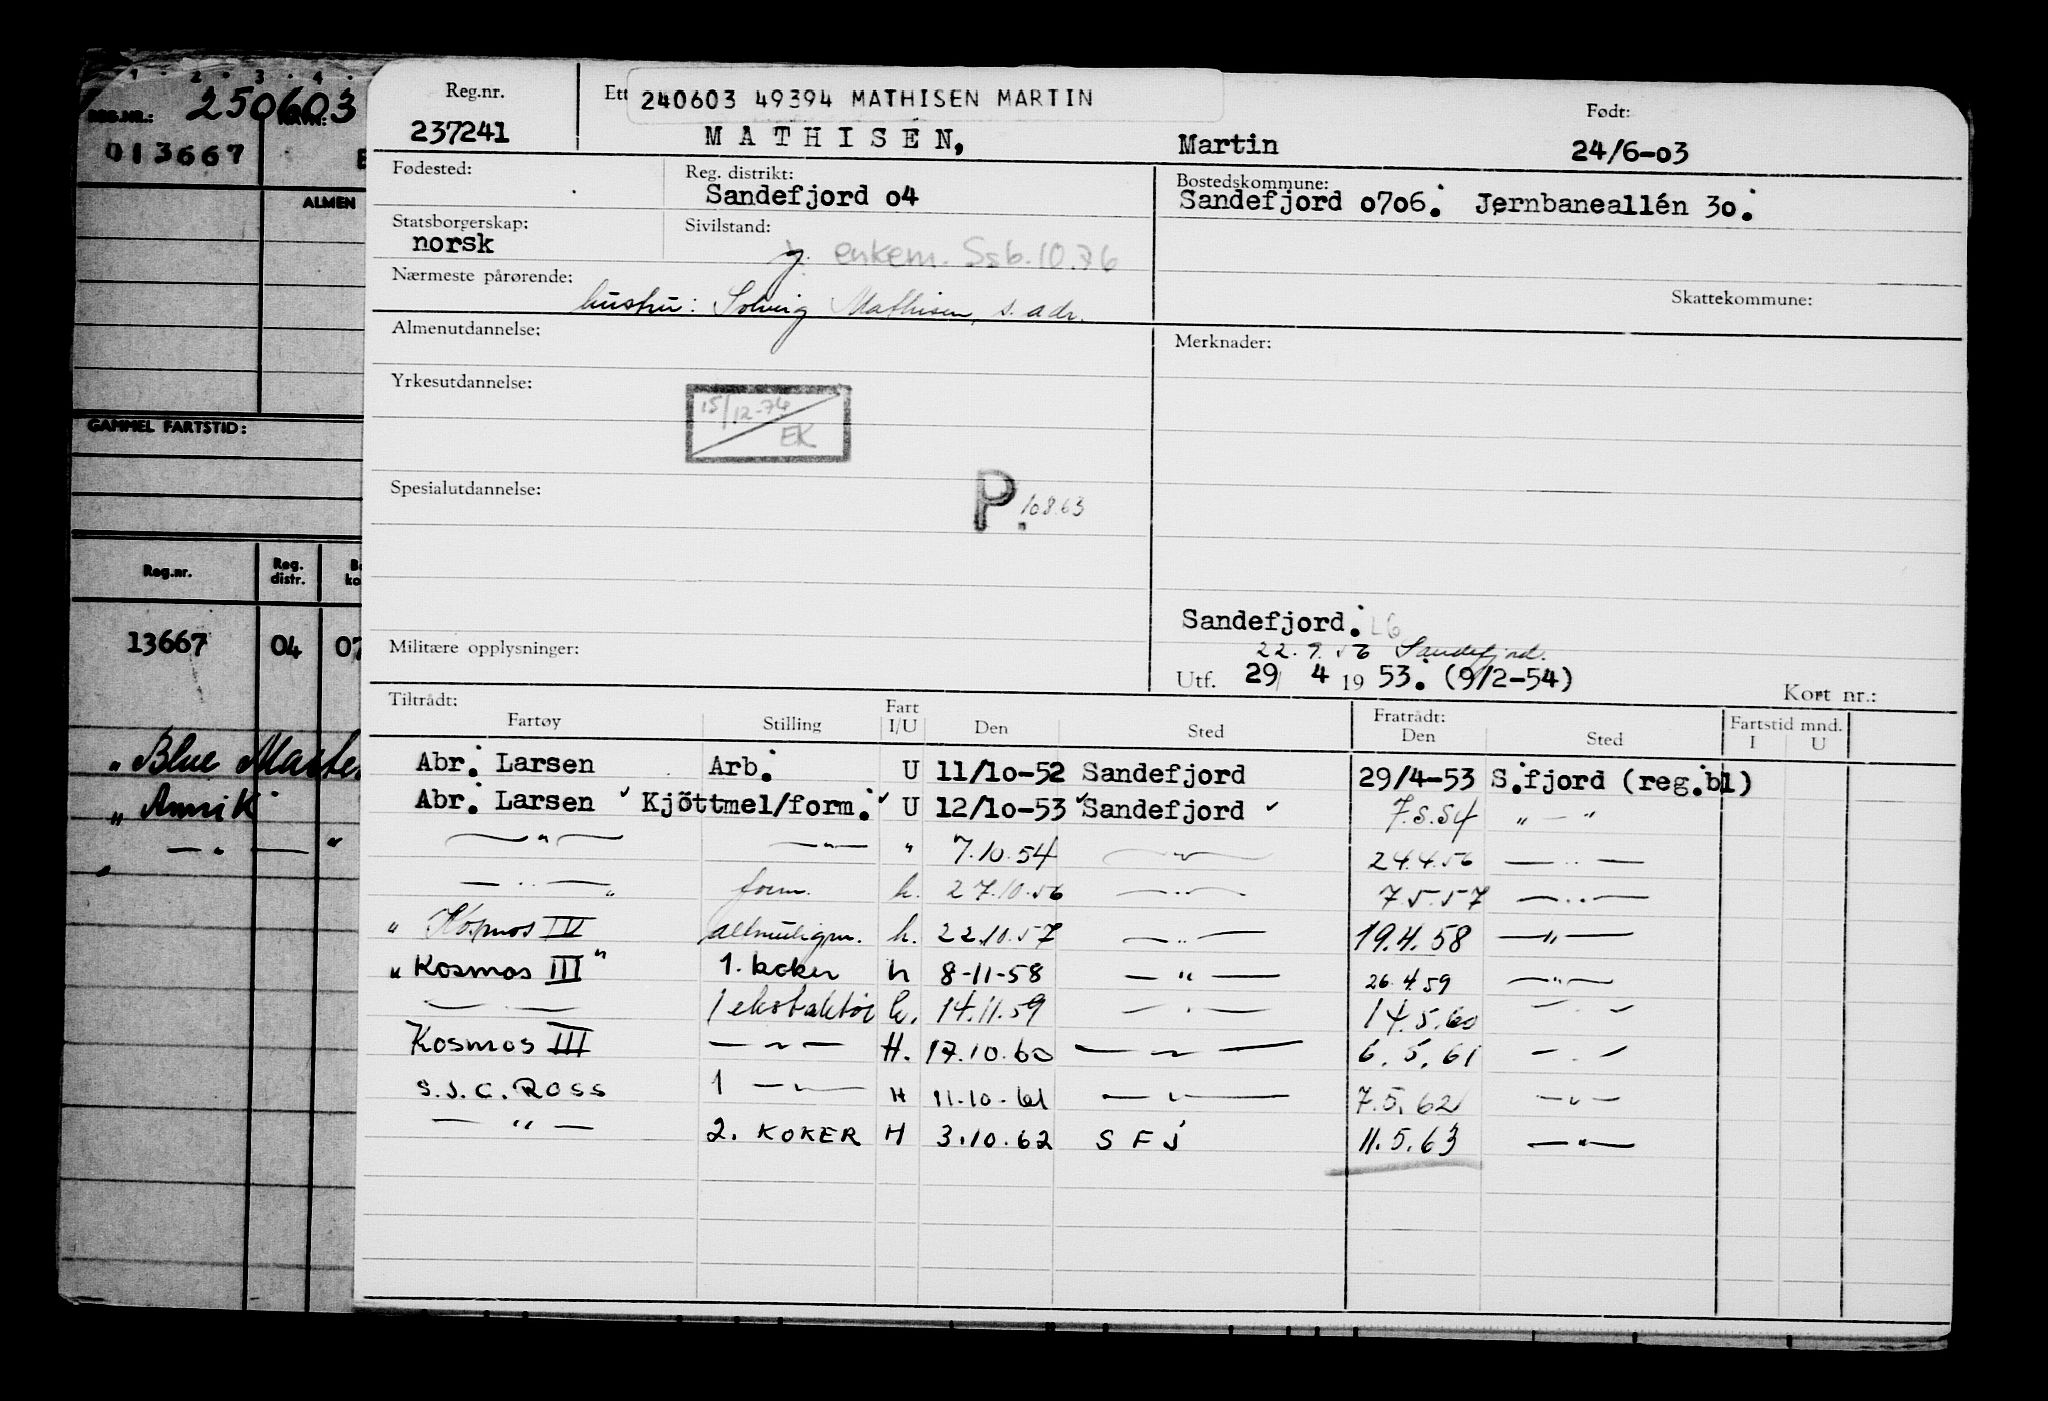 1 · 2 · 3 · 4 ·
REG.NR.: 250603
013667
ALMEN
GAMMEL FARTSTID:
Reg.nr. Reg. distr.
13667 04 07
" Blue Master
" Anrik
— " — "
Reg.nr.
237241
Ett
240603 49394 MATHISEN MARTIN
MATHISEN, Martin
Født:
24/6-03
Fødested:
Reg. distrikt:
Sandefjord 04
Bostedskommune:
Sandefjord 0706. Jernbaneallén 30.
Statsborgerskap:
norsk
Sivilstand:
g. enkem. Ssb. 10.76
Nærmeste pårørende:
hustru: Solveig Mathisen, s. adr.
Skattekommune:
Almenutdannelse:
Merknader:
Yrkesutdannelse:
15/12-74
EK
Spesialutdannelse:
P. 10863
Militære opplysninger:
Sandefjord. L6
22.9.56 Sandefjord.
Utf. 29/ 4 19 53. (9/2-54)
Kort nr.:
Tiltrådt: Fart Fratrådt: Fartstid mnd.
Fartøy Stilling I/U Den Sted Den Sted I U
Abr. Larsen Arb. U 11/10-52 Sandefjord 29/4-53 S.fjord (reg.bl)
Abr. Larsen Kjöttmel/form. U 12/10-53 Sandefjord 7.5.54 " — "
— " — — " — " 7.10.54 — " — 24.4.56 — " —
— " — " form. h. 27.10.56 — " — 7.5.57 — " —
" Kosmos IV altmuligm. h. 22.10.57 — " — 19.4.58 — " —
" Kosmos III " 1. koker h 8-11-58 — " — 26.4.59 — " —
— — 1 ekstraktør h. 14.11.59 — " — 14.5.60 — " —
Kosmos III — " — H. 17.10.60 — " — 6.5.61 — " —
S.J.C. ROSS 1 — " — H 11.10.61 — " — 7.5.62 — " —
— " — 2. KOKER H 3.10.62 SFJ 11.5.63 — " —